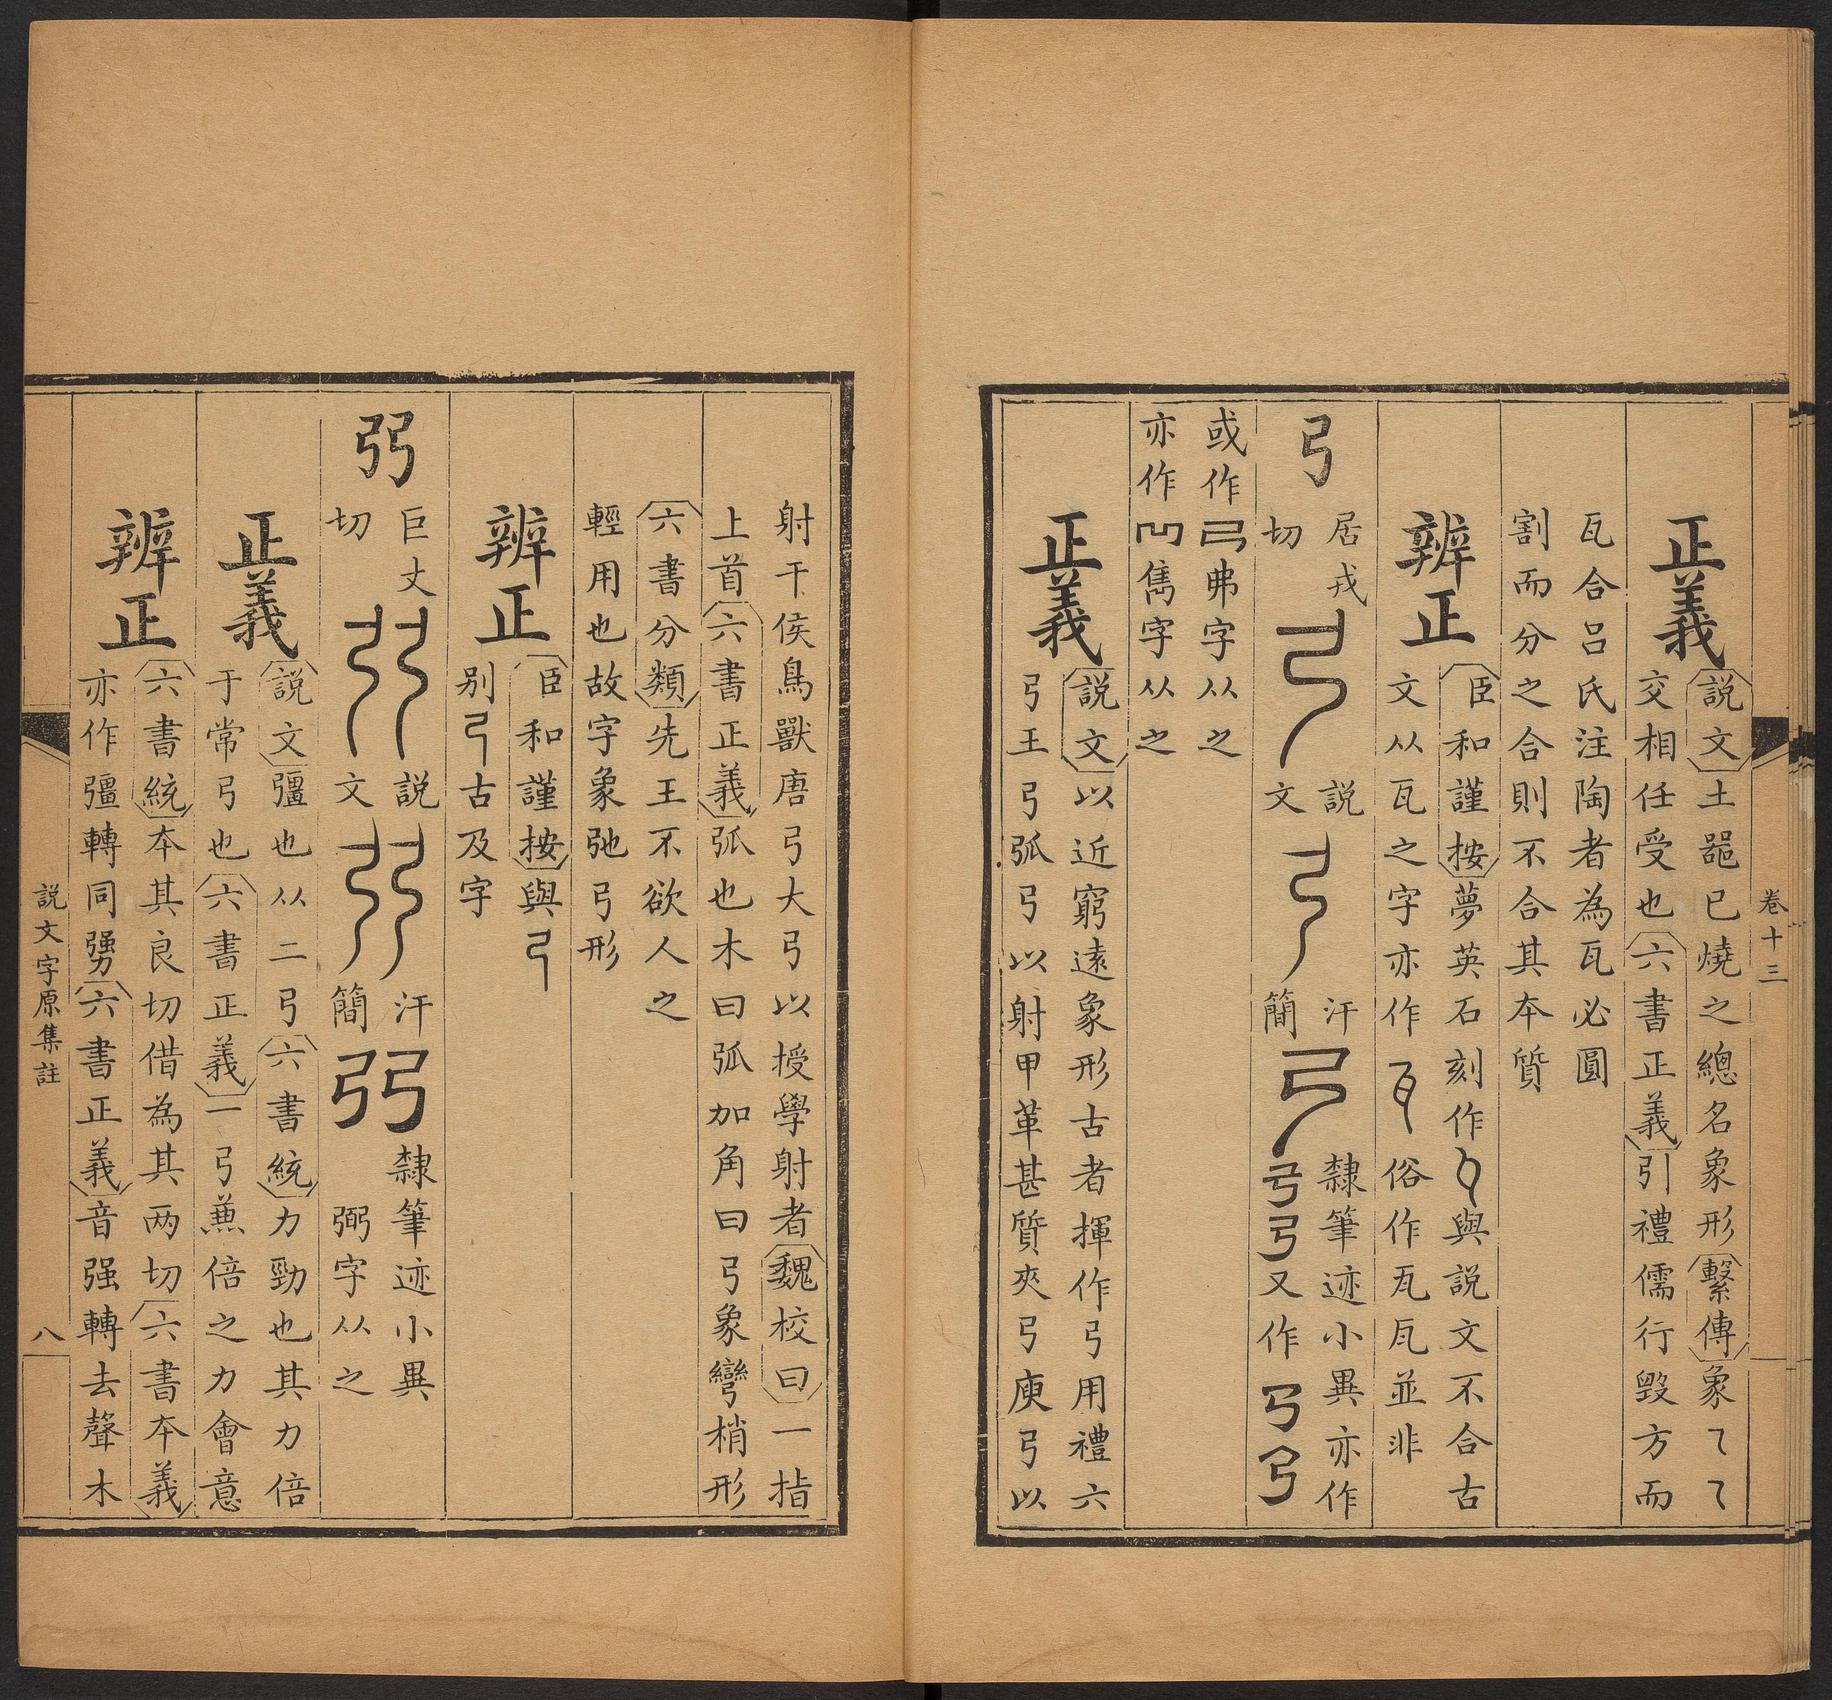 卷十三
正義
説文土噐已燒之總名象形繫傳象乁乁
交相任受也六書正義引禮儒行毀方而
瓦合呂氏注陶者為瓦必圓
割而分之合則不合其本質
辨正
臣和謹按夢英石刻作與説文不合古
文从瓦之字亦作俗作瓦瓦並非
弓
居戎
切
説
文
汗
簡
隸筆迹小異亦作
弓又作弓
或作弗字从之
亦作凹雋字从之
正義
説文以近窮遠象形古者揮作弓用禮六
弓王弓弧弓以射甲革甚質夾弓庾弓以
射干侯鳥獸唐弓大弓以授學射者魏校曰一㨖
上首六書正義弧也木曰弧加角曰弓象彎梢形
六書分類先王不欲人之
輕用也故字象弛弓形
辨正
臣和謹按與弓
别𢎜古及字
弜
巨丈
切
説
文
汗
簡
隸筆迹小異
弼字从之
正義
説文彊也从二弓六書統力勁也其力倍
于常弓也六書正義一弓兼倍之力會意
辨正
六書統本其良切借為其两切六書本義
亦作彊轉同勥六書正義音强轉去聲木
説文字原集註
八